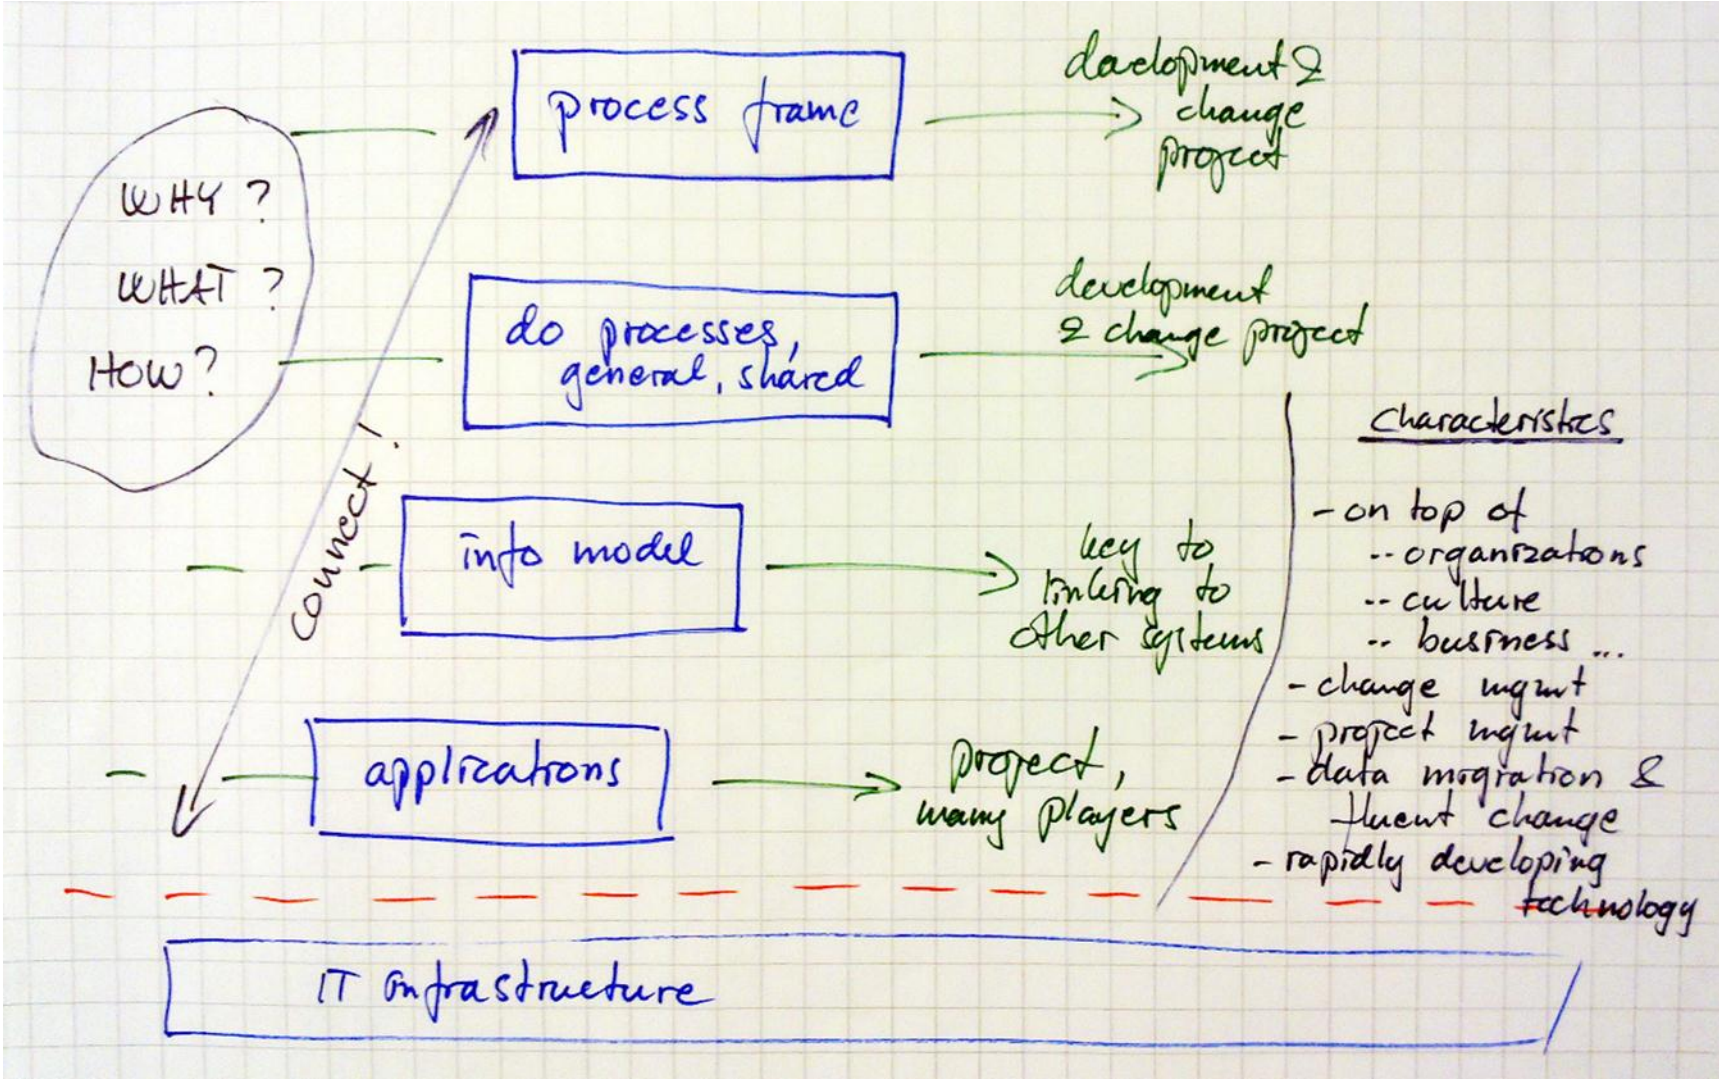 WHY ?
WHAT ?
HOW ?
connect !
process frame
development &
change
project
do processes,
general, shared
development
& change project
info model
key to
linking to
other systems
applications
project,
many players
characteristics
- on top of
-- organizations
-- culture
-- business ...
- change mgmt
- project mgmt
- data migration &
fluent change
- rapidly developing
technology
IT infrastructure